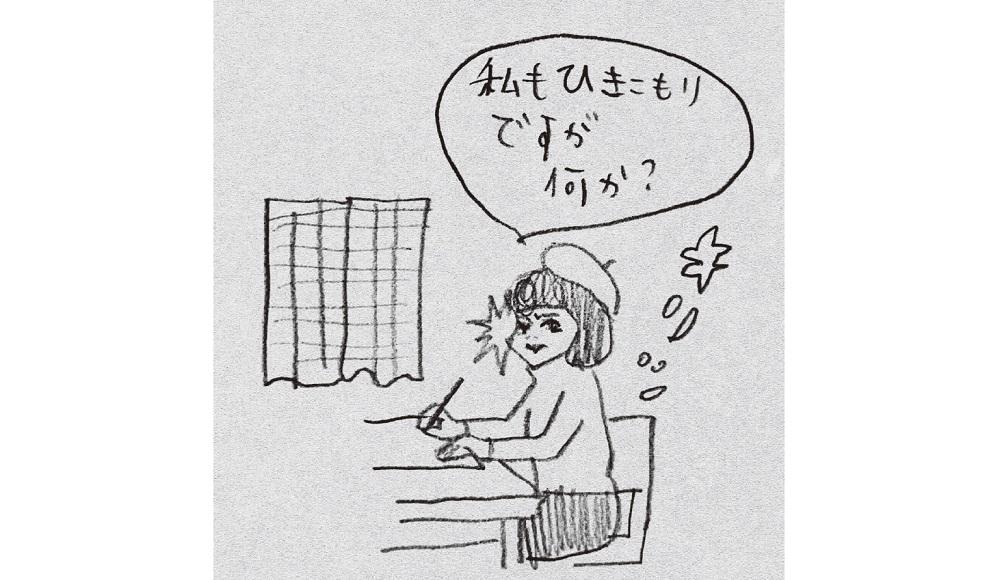 私もひきこもり
ですが
何か?